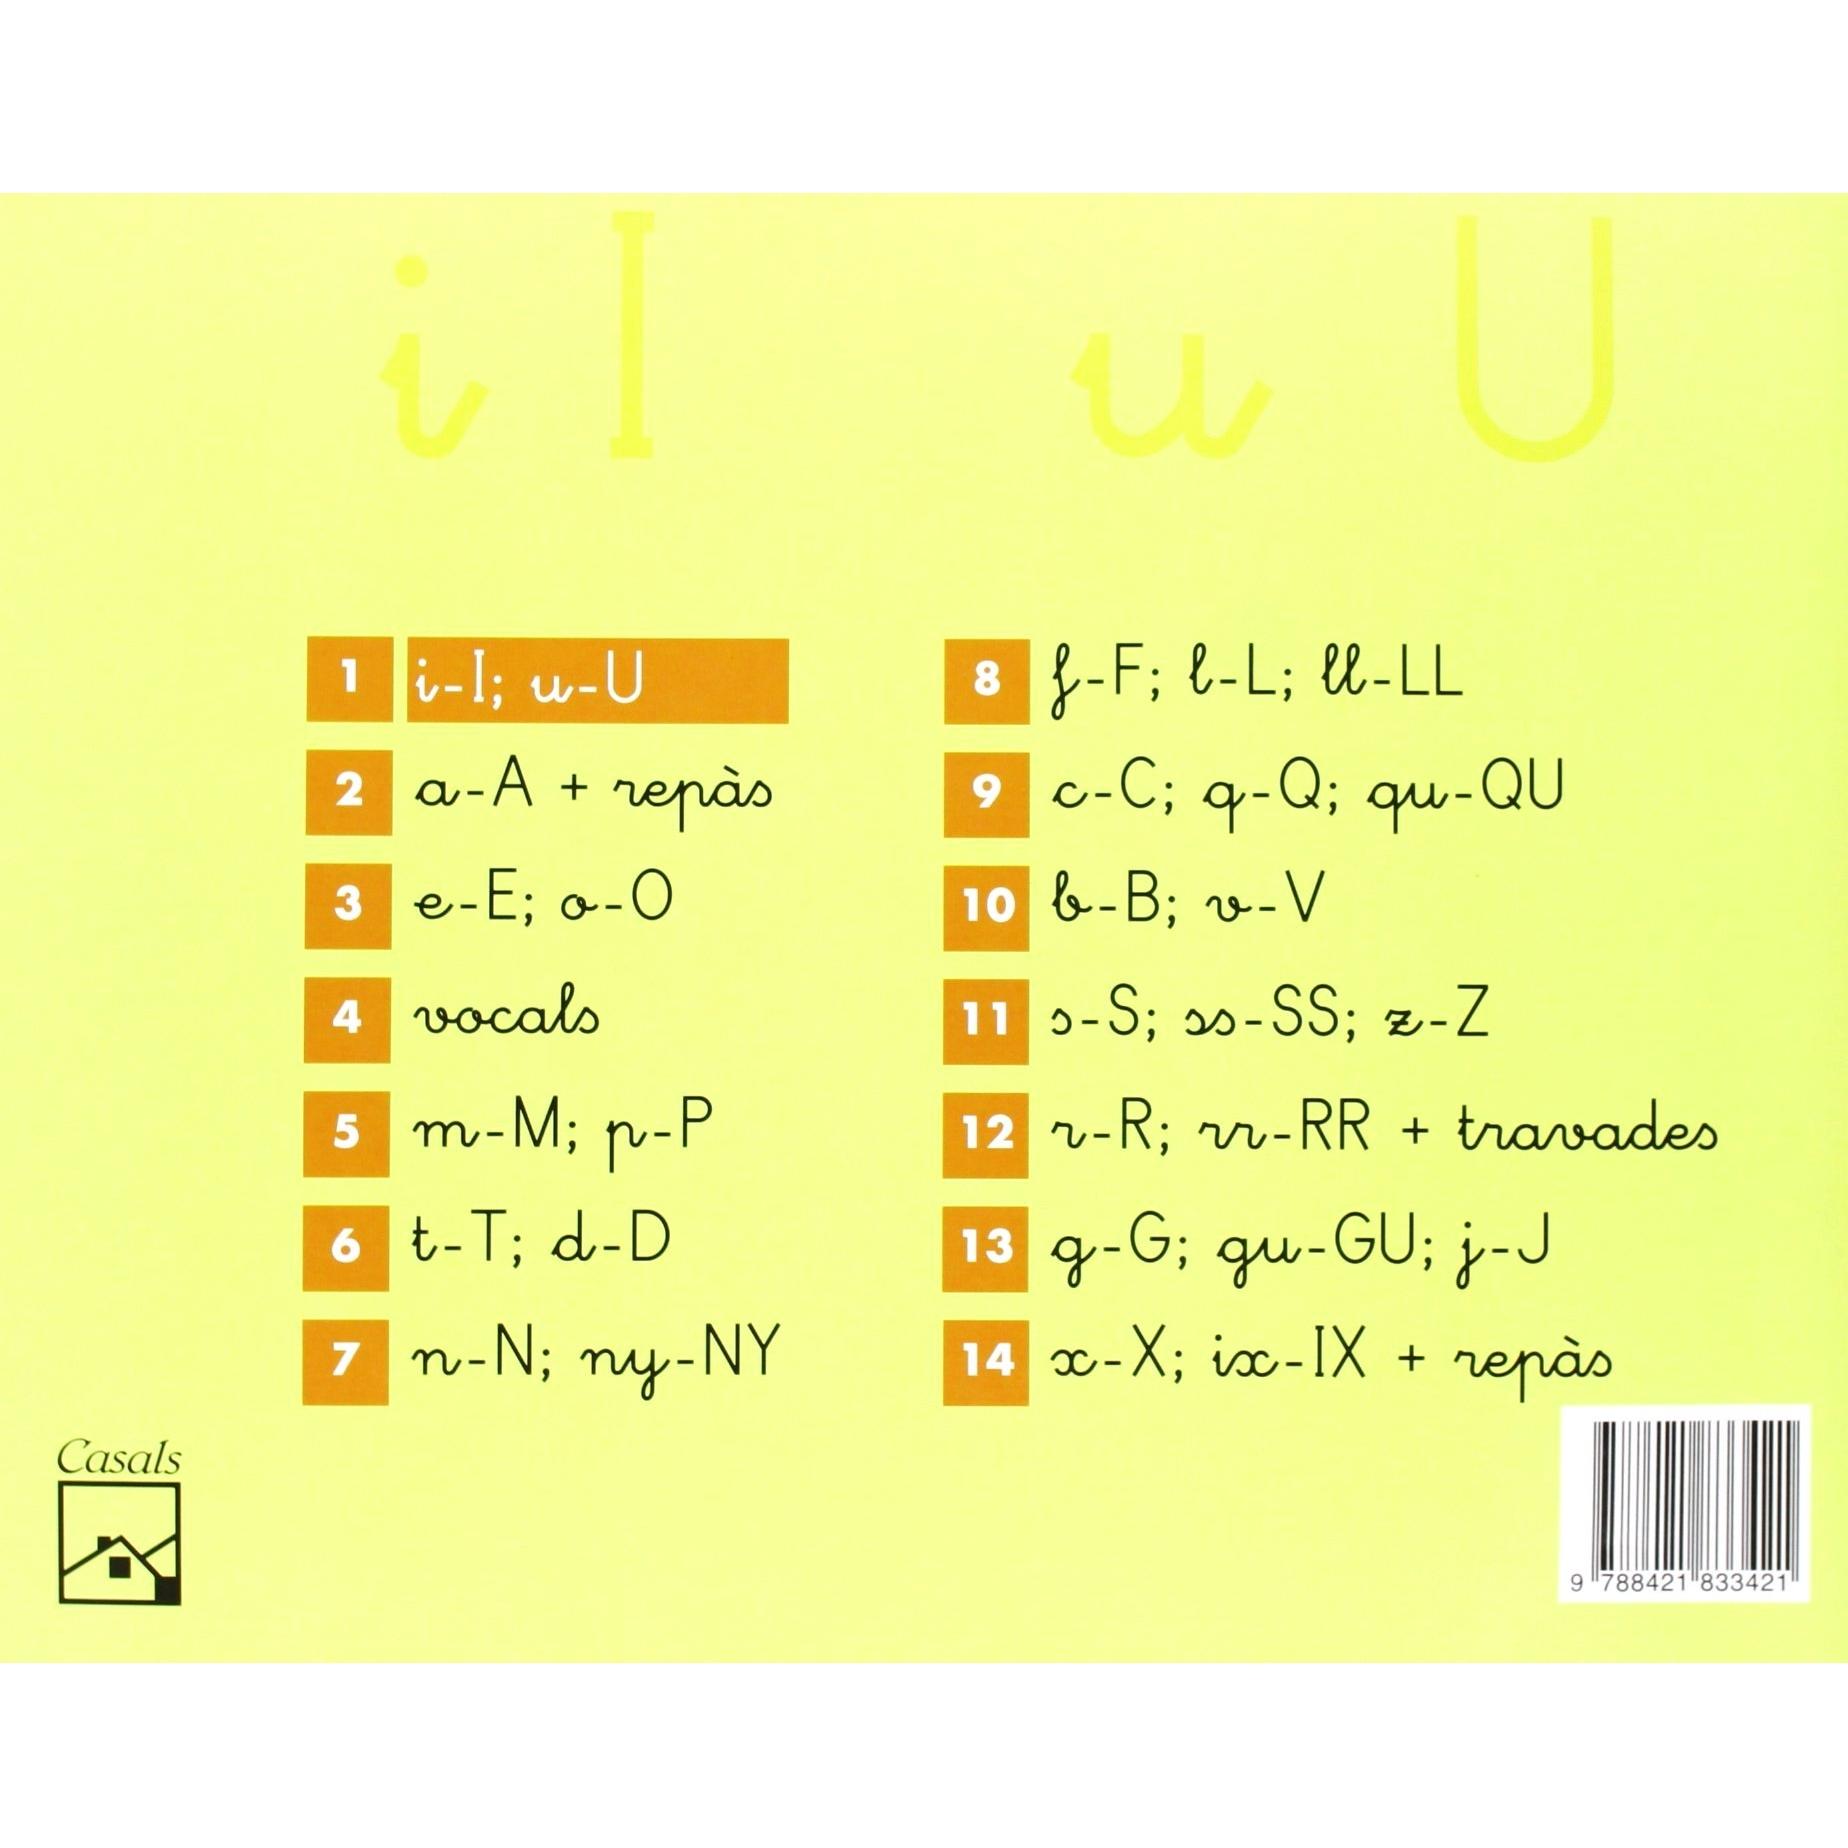 i I u U
1 i-I; u-U
2 a-A + repàs
3 e-E; o-O
4 vocals
5 m-M; p-P
6 t-T; d-D
7 n-N; ny-NY
8 f-F; l-L; ll-LL
9 c-C; q-Q; qu-QU
10 b-B; v-V
11 s-S; ss-SS; z-Z
12 r-R; rr-RR + travades
13 g-G; gu-GU; j-J
14 x-X; ix-IX + repàs
Casals
9 788421 833421